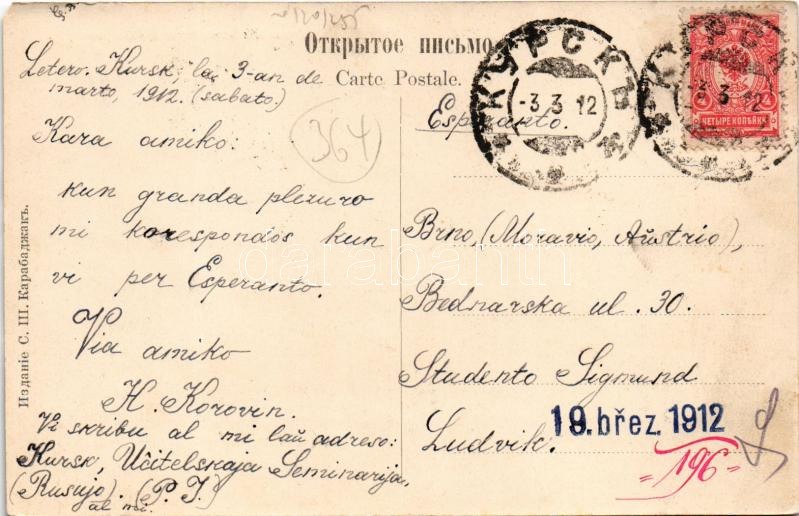 Открытое письмо
Carte Postale.
Letero. Kursk, la 3-an de
marto, 1912. (sabato)
Kara amiko:
kun granda plezuro
mi korespondos kun
vi per Esperanto.
Via amiko
H. Korovin.
Vi skribu al mi laŭ adreso:
Kursk, Učitelskaja Seminarija,
(Rusujo). (P. I.)
al mi.
364
Изданіе С. Ш. Карабаджакъ.
Esperanto.
Brno, (Moravio, Aŭstrio),
Bednarska ul. 30.
Studento Sigmund
Ludvik.
19.břez.1912
=196=
КУРСКЪ
-3 3 12
3 12
ЧЕТЫРЕ КОПѢЙКИ
darabanth